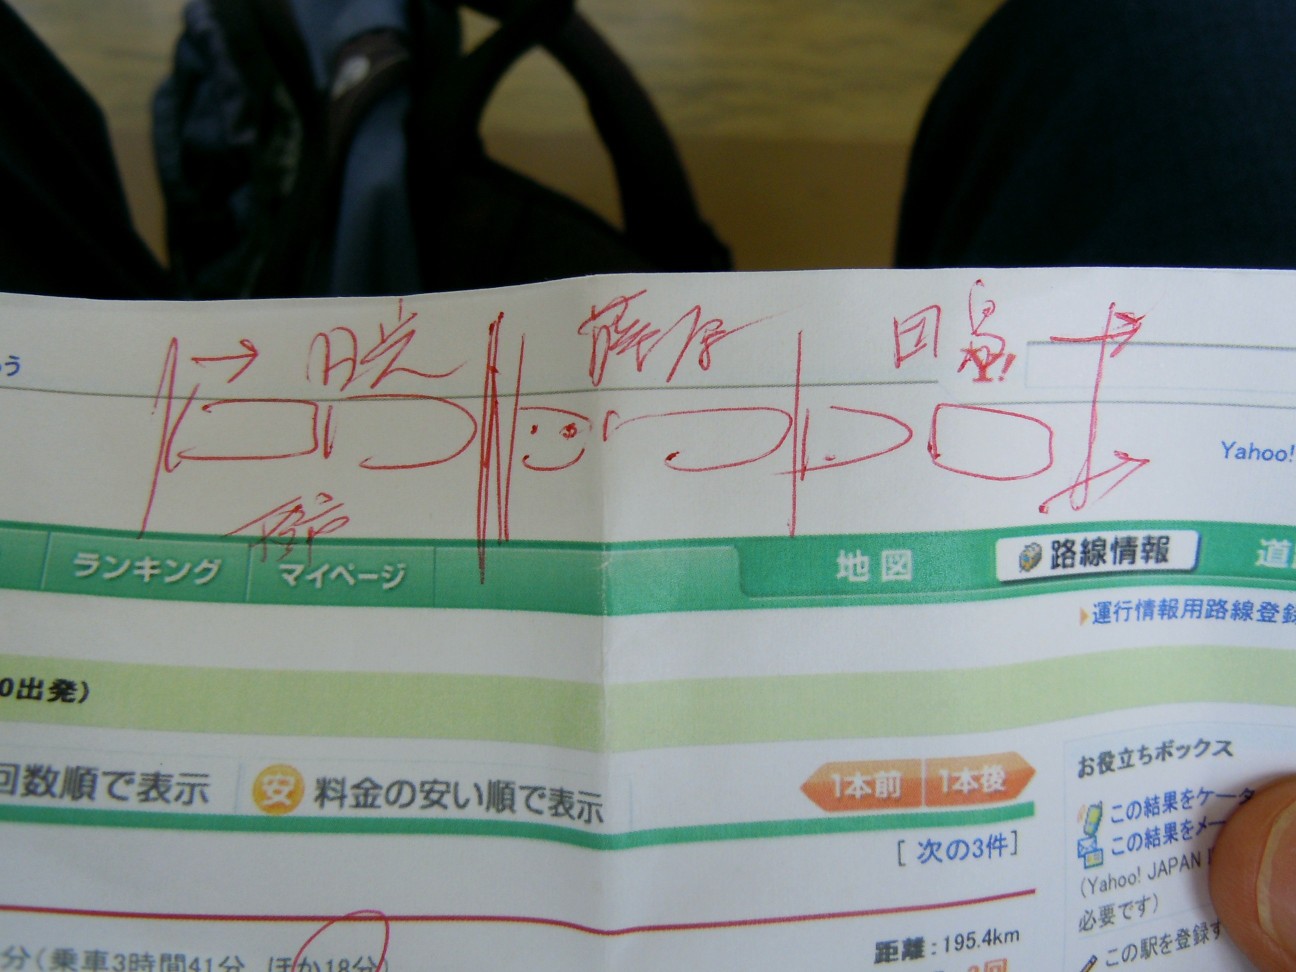 日光 藤原 日
う
Yahoo!
ランキング マイページ 地図 路線情報
運行情報用路線登録
0出発)
回数順で表示 安 料金の安い順で表示 1本前 1本後
お役立ちボックス
[ 次の3件]
この結果をケータ
この結果をメー
(Yahoo! JAPAN
必要です)
分(乗車3時間41分、ほか18分)
距離:195.4km
この駅を登録す